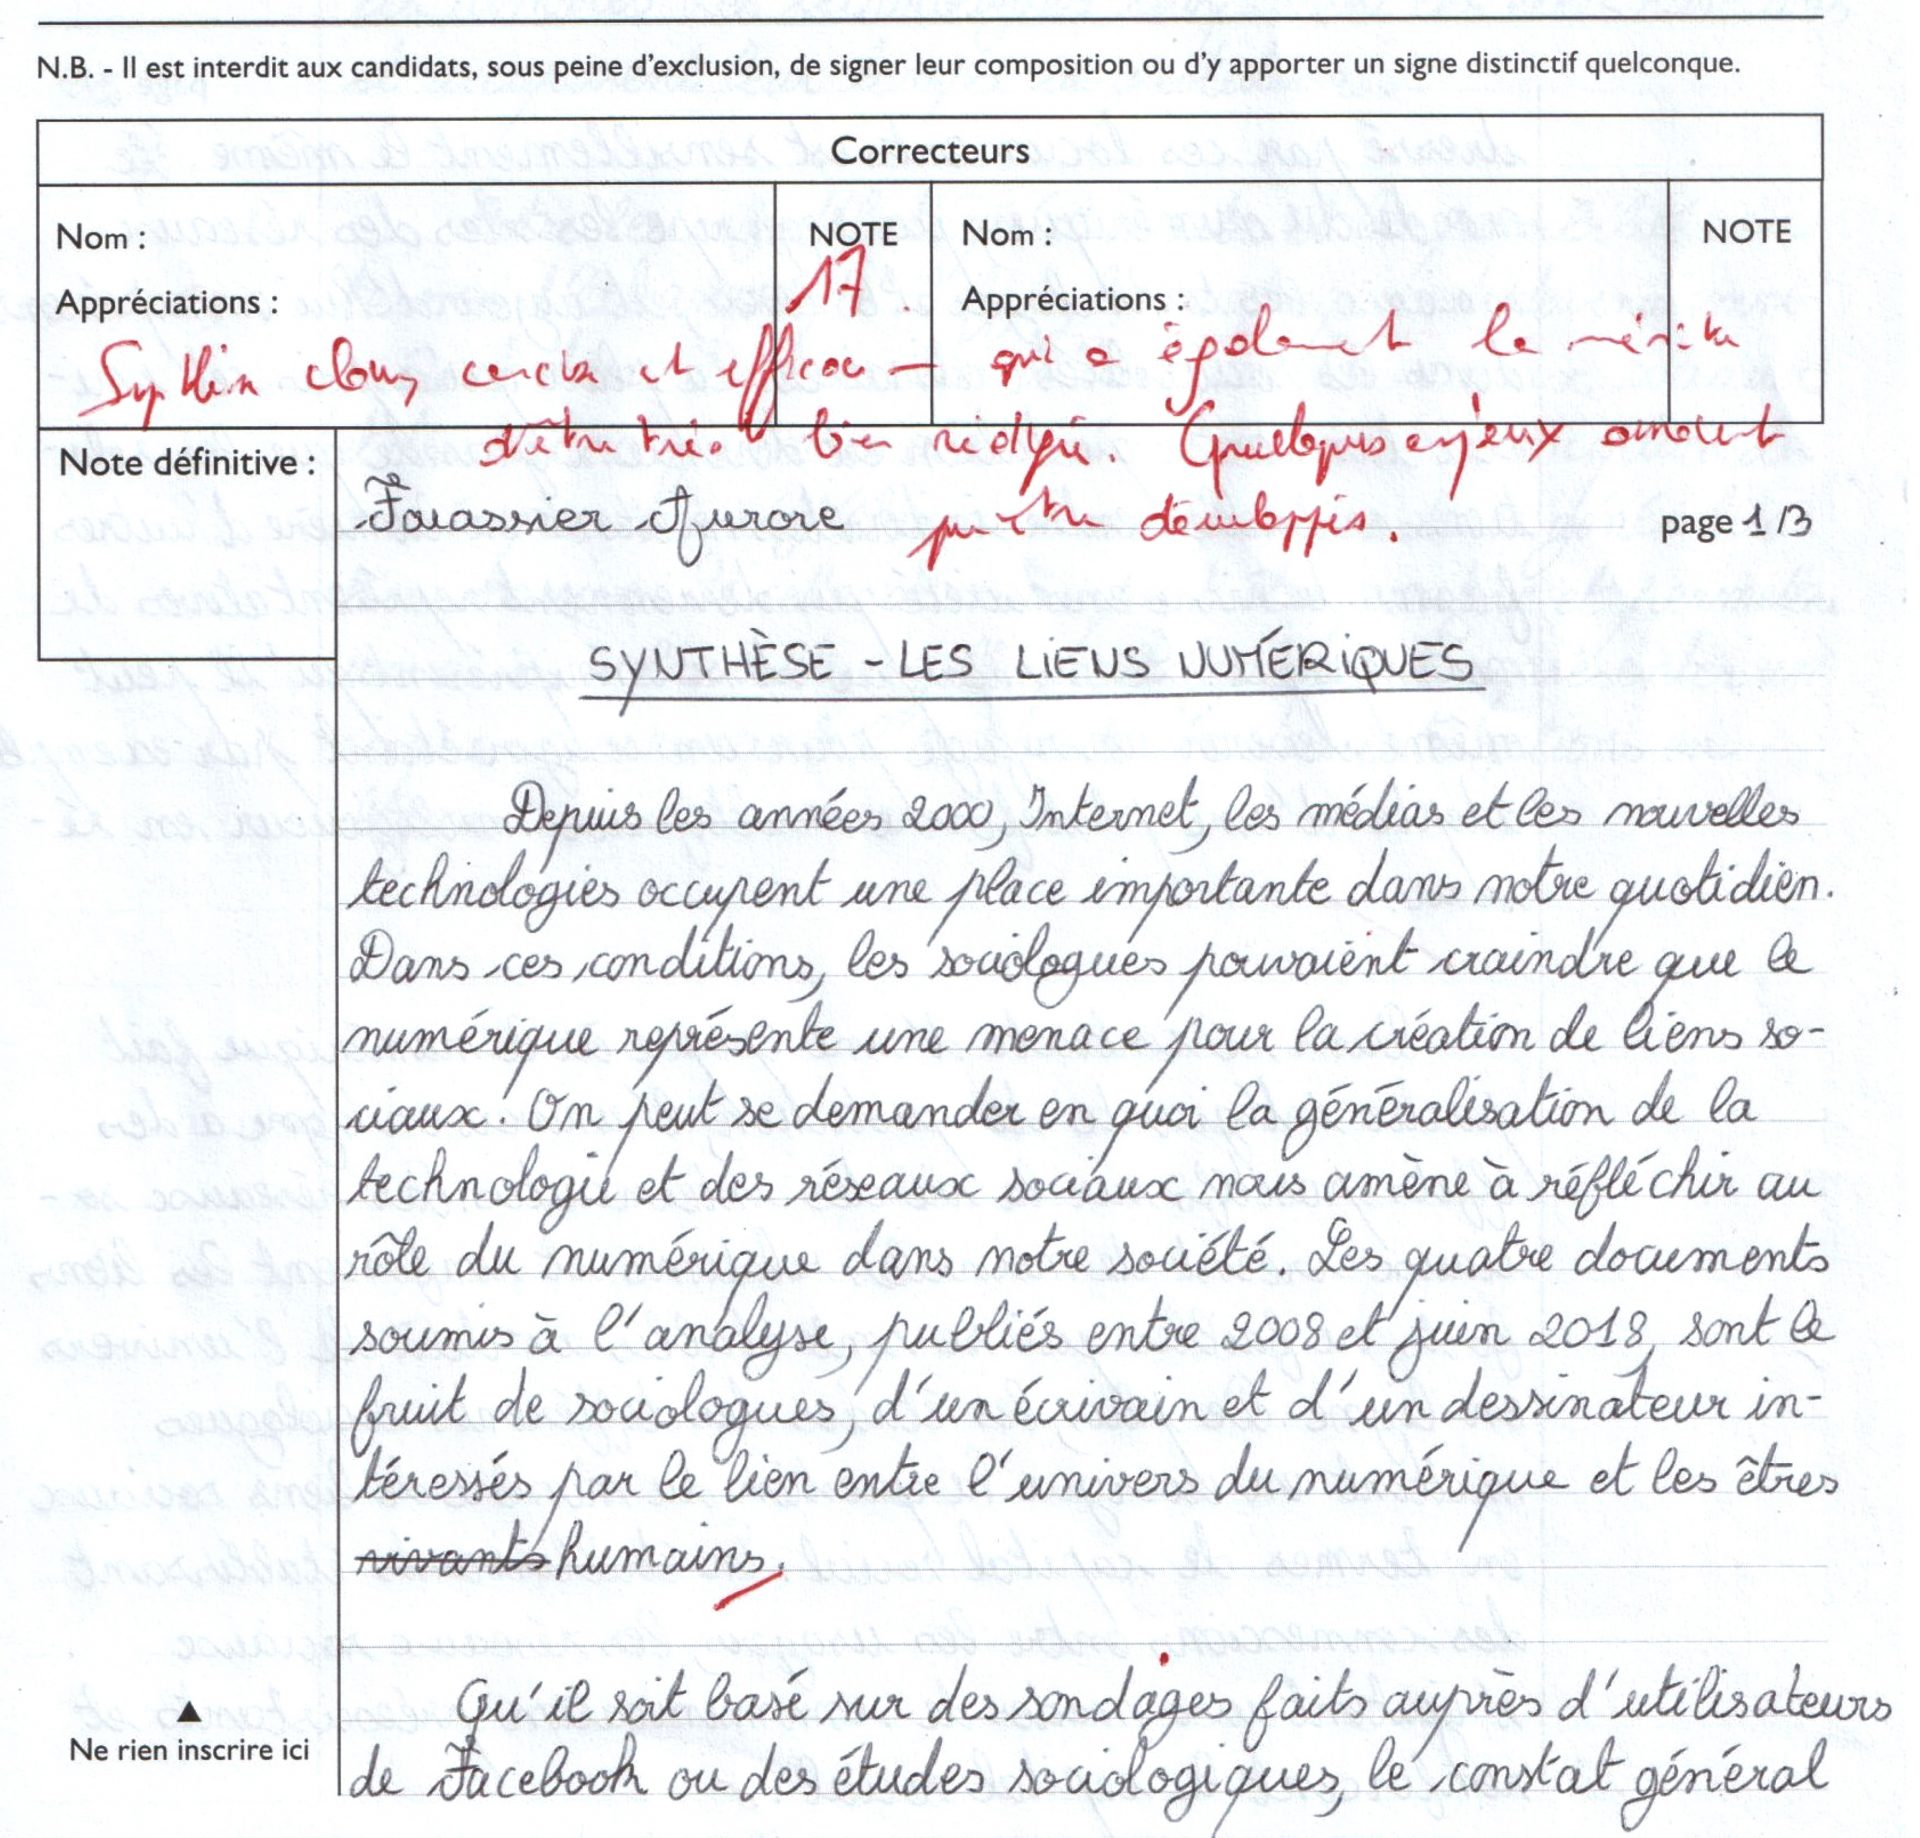 N.B. - Il est interdit aux candidats, sous peine d'exclusion, de signer leur composition ou d'y apporter un signe distinctif quelconque.
Correcteurs
Nom :
NOTE
Nom :
NOTE
17
Appréciations :
Appréciations :
Synthèse claire, concise et efficace – qui a également le mérite
d'être très bien rédigée. Quelques enjeux auraient
pu être développés.
Note définitive :
Fouassier Aurore
page 1/3
SYNTHÈSE - LES LIENS NUMÉRIQUES
Depuis les années 2000, Internet, les médias et les nouvelles
technologies occupent une place importante dans notre quotidien.
Dans ces conditions, les sociologues pouvaient craindre que le
numérique représente une menace pour la création de liens so-
ciaux. On peut se demander en quoi la généralisation de la
technologie et des réseaux sociaux nous amène à réfléchir au
rôle du numérique dans notre société. Les quatre documents
soumis à l'analyse, publiés entre 2008 et juin 2018, sont le
fruit de sociologues, d'un écrivain et d'un dessinateur in-
téressés par le lien entre l'univers du numérique et les êtres
vivants humains.
Qu'il soit basé sur des sondages faits auprès d'utilisateurs
de Facebook ou des études sociologiques, le constat général
▲
Ne rien inscrire ici